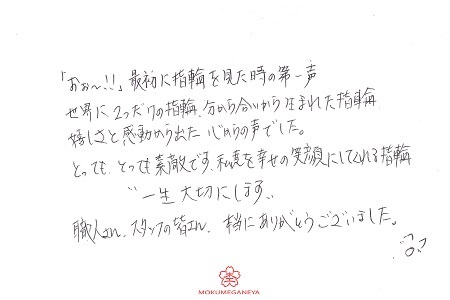 「おぉ〜!!」最初に指輪を見た時の第一声
世界に2つだけの指輪、分かち合いから生まれた指輪
嬉しさと感動から出た心からの声でした。
とっても、とっても素敵です、私達を幸せの笑顔にしてくれる指輪
"一生大切にします"
職人さん、スタッフの皆さん、本当にありがとうございました。
MOKUMEGANEYA